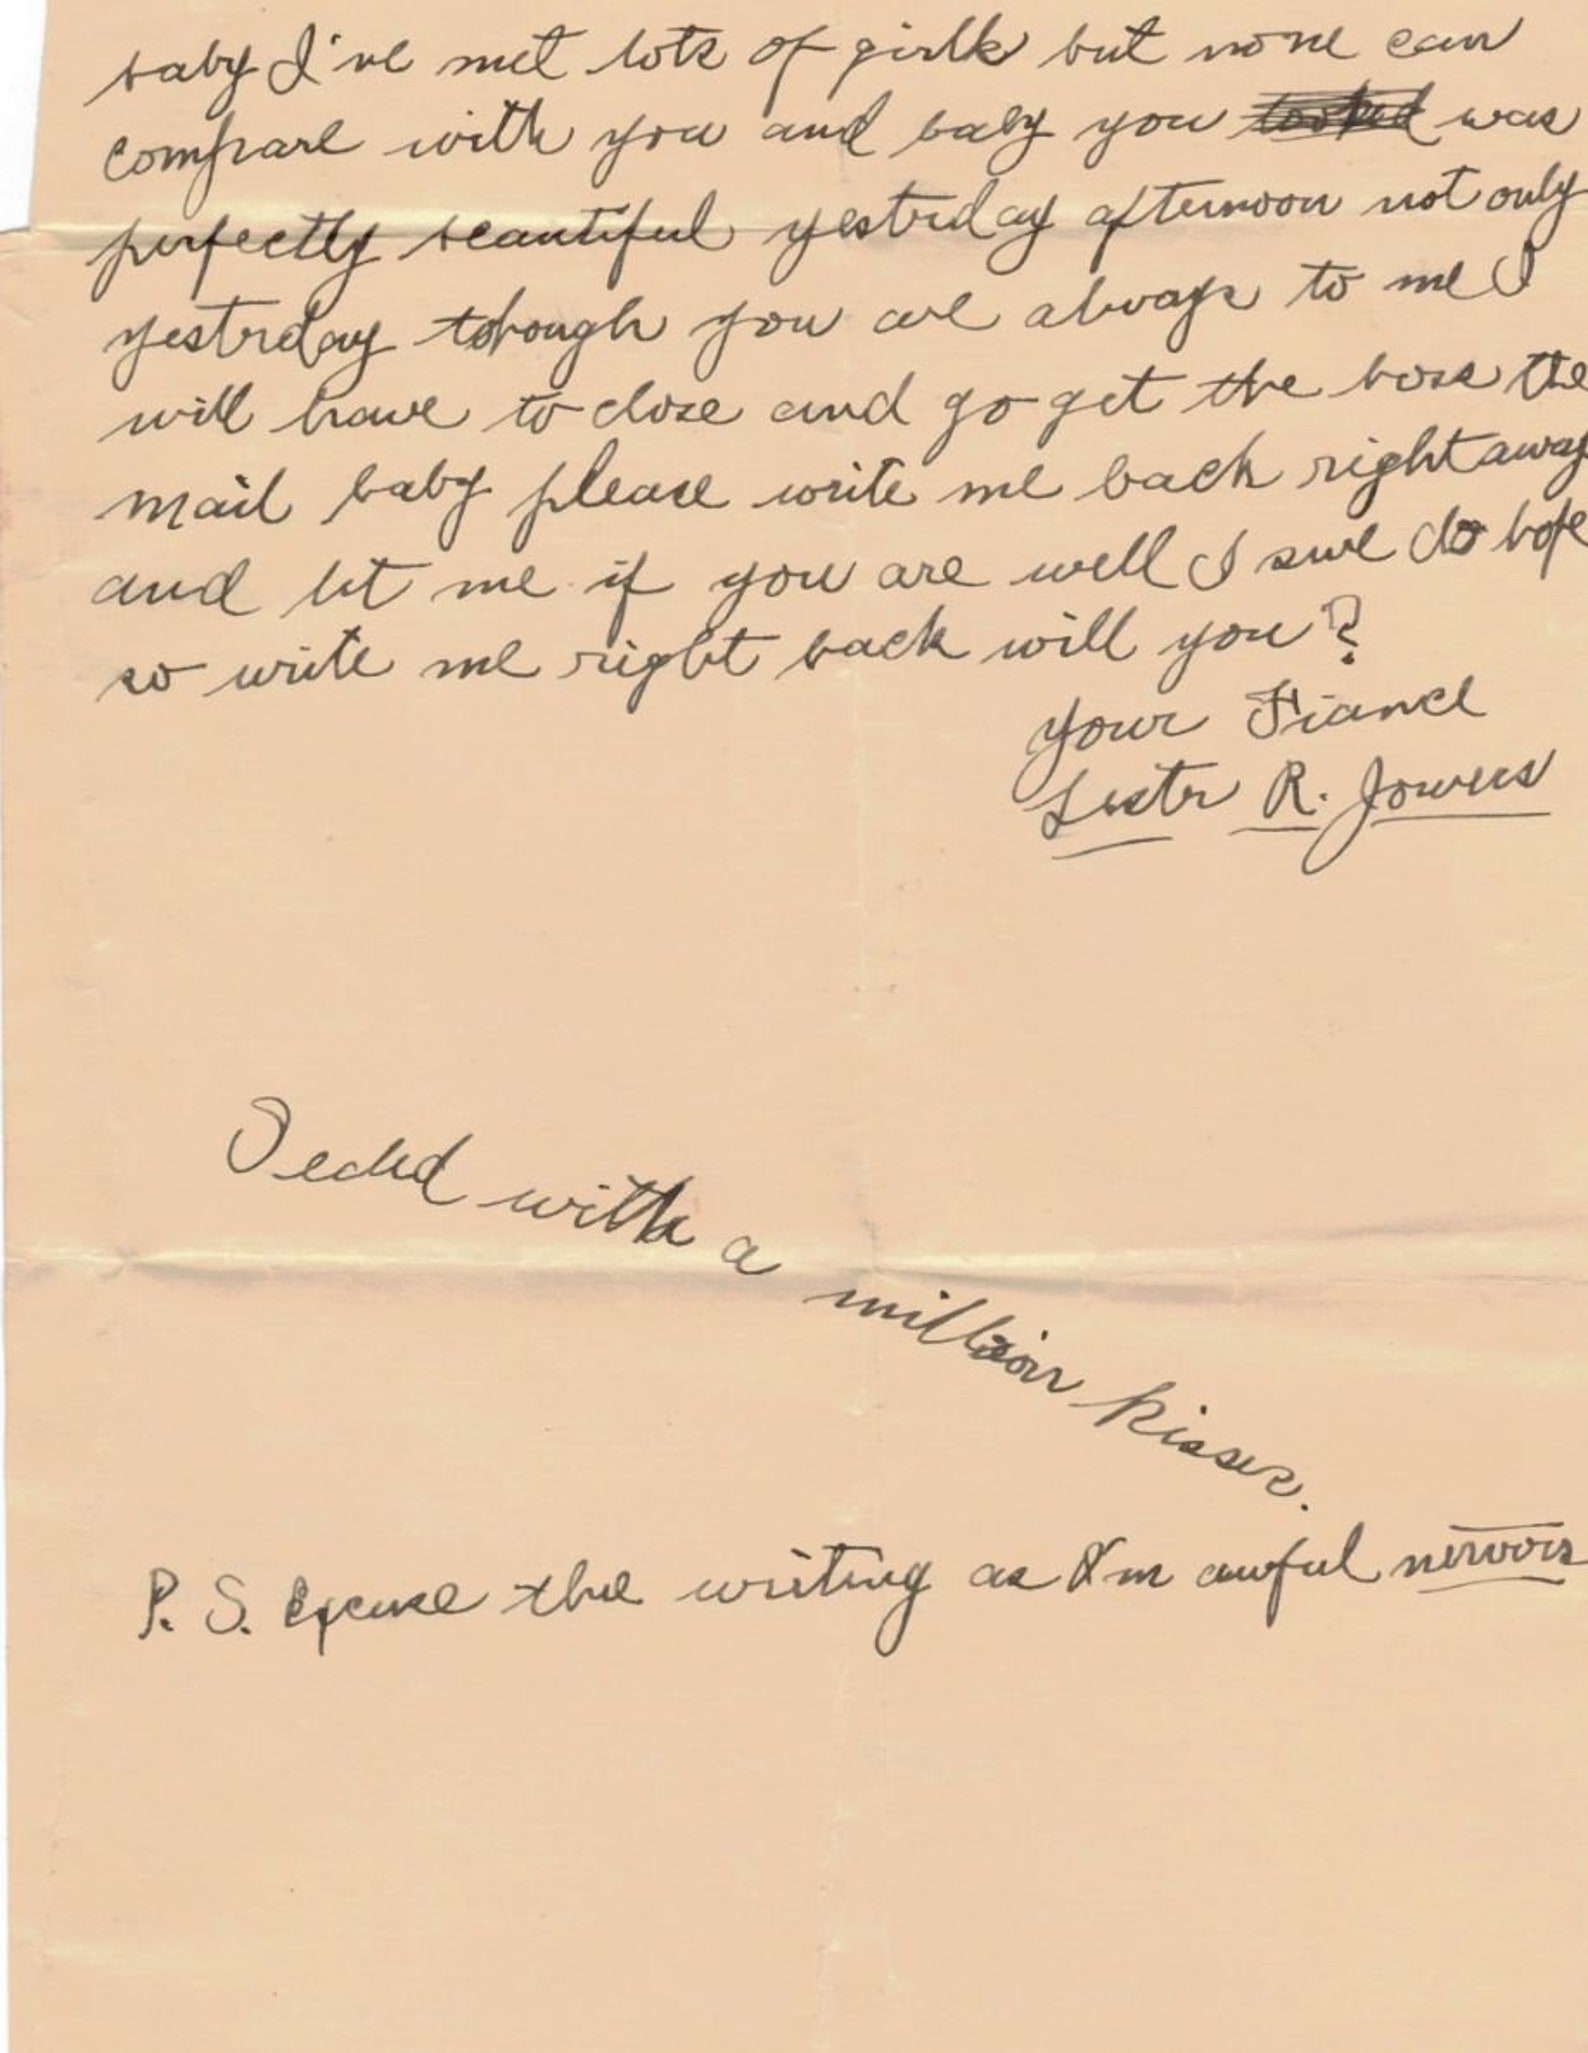 baby I've met lots of girls but none can
compare with you and baby you looked was
perfectly beautiful yesterday afternoon not only
yesterday though you are always to me I
will have to close and go get the boss the
mail baby please write me back right away
and let me if you are well I sure do hope
so write me right back will you?
Your Fiance
Lester R. Jowers
Sealed with a million kisses.
P.S. Excuse the writing as I'm awful nervous